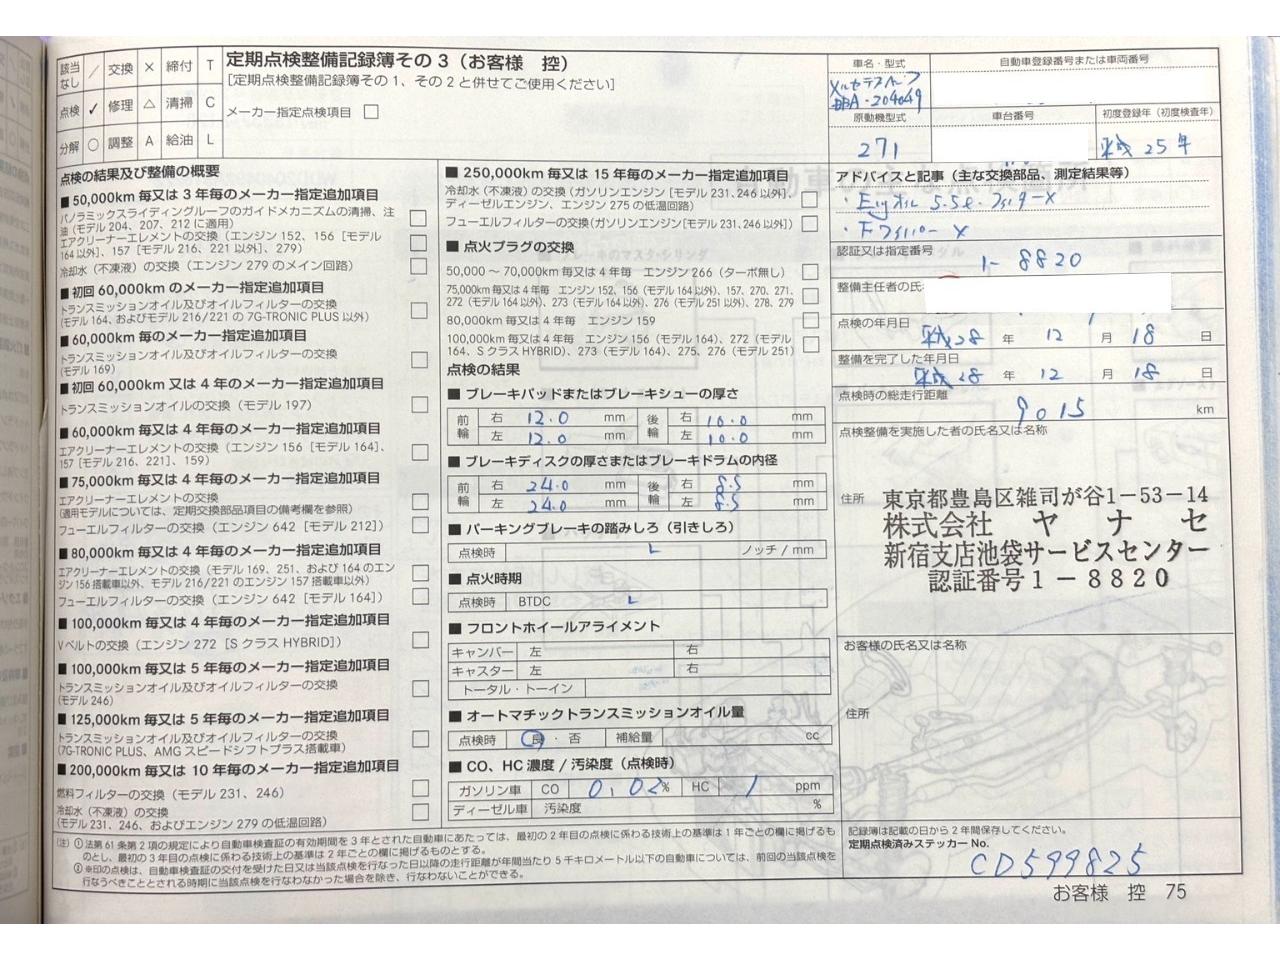 該当なし ／ 交換 × 締付 T
点検 ✓ 修理 △ 清掃 C
分解 ○ 調整 A 給油 L
定期点検整備記録簿その3(お客様 控)
[定期点検整備記録簿その1、その2と併せてご使用ください]
メーカー指定点検項目 □
車名・型式
DBA-204049
原動機型式
271
自動車登録番号または車両番号
車台番号
初度登録年(初度検査年)
平成25年
点検の結果及び整備の概要
■ 50,000km 毎又は 3 年毎のメーカー指定追加項目
パノラミックスライディングルーフのガイドメカニズムの清掃、注
油(モデル 204、207、212 に適用) □
エアクリーナーエレメントの交換(エンジン 152、156[モデル
164 以外]、157[モデル 216、221 以外]、279) □
冷却水(不凍液)の交換(エンジン 279 のメイン回路) □
■ 初回 60,000km のメーカー指定追加項目
トランスミッションオイル及びオイルフィルターの交換
(モデル 164、およびモデル 216/221 の 7G-TRONIC PLUS 以外) □
■ 60,000km 毎のメーカー指定追加項目
トランスミッションオイル及びオイルフィルターの交換
(モデル 169) □
■ 初回 60,000km 又は 4 年のメーカー指定追加項目
トランスミッションオイルの交換(モデル 197) □
■ 60,000km 毎又は 4 年毎のメーカー指定追加項目
エアクリーナーエレメントの交換(エンジン 156[モデル 164]、
157[モデル 216、221]、159) □
■ 75,000km 毎又は 4 年毎のメーカー指定追加項目
エアクリーナーエレメントの交換
(適用モデルについては、定期交換部品項目の備考欄を参照) □
フューエルフィルターの交換(エンジン 642[モデル 212]) □
■ 80,000km 毎又は 4 年毎のメーカー指定追加項目
エアクリーナーエレメントの交換(モデル 169、251、および 164 のエン
ジン 156 搭載車以外、モデル 216/221 のエンジン 157 搭載車以外) □
フューエルフィルターの交換(エンジン 642[モデル 164]) □
■ 100,000km 毎又は 4 年毎のメーカー指定追加項目
Vベルトの交換(エンジン 272[S クラス HYBRID]) □
■ 100,000km 毎又は 5 年毎のメーカー指定追加項目
トランスミッションオイル及びオイルフィルターの交換
(モデル 246) □
■ 125,000km 毎又は 5 年毎のメーカー指定追加項目
トランスミッションオイル及びオイルフィルターの交換
(7G-TRONIC PLUS、AMG スピードシフトプラス搭載車) □
■ 200,000km 毎又は 10 年毎のメーカー指定追加項目
燃料フィルターの交換(モデル 231、246) □
冷却水(不凍液)の交換
(モデル 231、246、およびエンジン 279 の低温回路) □
■ 250,000km 毎又は 15 年毎のメーカー指定追加項目
冷却水(不凍液)の交換(ガソリンエンジン[モデル 231、246 以外]、
ディーゼルエンジン、エンジン 275 の低温回路) □
フューエルフィルターの交換(ガソリンエンジン[モデル 231、246 以外]) □
■ 点火プラグの交換
50,000 ~ 70,000km 毎又は 4 年毎 エンジン 266(ターボ無し) □
75,000km 毎又は 4 年毎 エンジン 152、156(モデル 164 以外)、157、270、271、
272(モデル 164 以外)、273(モデル 164 以外)、276(モデル 251 以外)、278、279 □
80,000km 毎又は 4 年毎 エンジン 159 □
100,000km 毎又は 4 年毎 エンジン 156(モデル 164)、272(モデル
164、S クラス HYBRID)、273(モデル 164)、275、276(モデル 251) □
点検の結果
■ ブレーキパッドまたはブレーキシューの厚さ
前輪 右 12.0 mm 後輪 右 10.0 mm
左 12.0 mm 左 10.0 mm
■ ブレーキディスクの厚さまたはブレーキドラムの内径
前輪 右 24.0 mm 後輪 右 8.5 mm
左 24.0 mm 左 8.5 mm
■ パーキングブレーキの踏みしろ(引きしろ)
点検時 ノッチ / mm
■ 点火時期
点検時 BTDC
■ フロントホイールアライメント
キャンバー 左 右
キャスター 左 右
トータル・トーイン
■ オートマチックトランスミッションオイル量
点検時 良・否 補給量 cc
■ CO、HC 濃度 / 汚染度(点検時)
ガソリン車 CO 0.02% HC 1 ppm
ディーゼル車 汚染度 %
アドバイスと記事(主な交換部品、測定結果等)
認証又は指定番号
1-8820
整備主任者の氏
点検の年月日
平成28年 12月 18日
整備を完了した年月日
平成28年 12月 18日
点検時の総走行距離
9015 km
点検整備を実施した者の氏名又は名称
住所
東京都豊島区雑司が谷1-53-14
株式会社 ヤナセ
新宿支店池袋サービスセンター
認証番号1-8820
お客様の氏名又は名称
住所
記録簿は記載の日から 2 年間保存してください。
定期点検済みステッカー No.
CD599825
(注) ① 法第 61 条第 2 項の規定により自動車検査証の有効期間を 3 年とされた自動車にあたっては、最初の 2 年目の点検に係わる技術上の基準は 1 年ごとの欄に掲げるも
のとし、最初の 3 年目の点検に係わる技術上の基準は 2 年ごとの欄に掲げるものとする。
② ※印の点検は、自動車検査証の交付を受けた日又は当該点検を行なった日以降の走行距離が年間当たり 5 千キロメートル以下の自動車については、前回の当該点検を
行なうべきこととされる時期に当該点検を行なわなかった場合を除き、行なわないことができる。
お客様 控 75